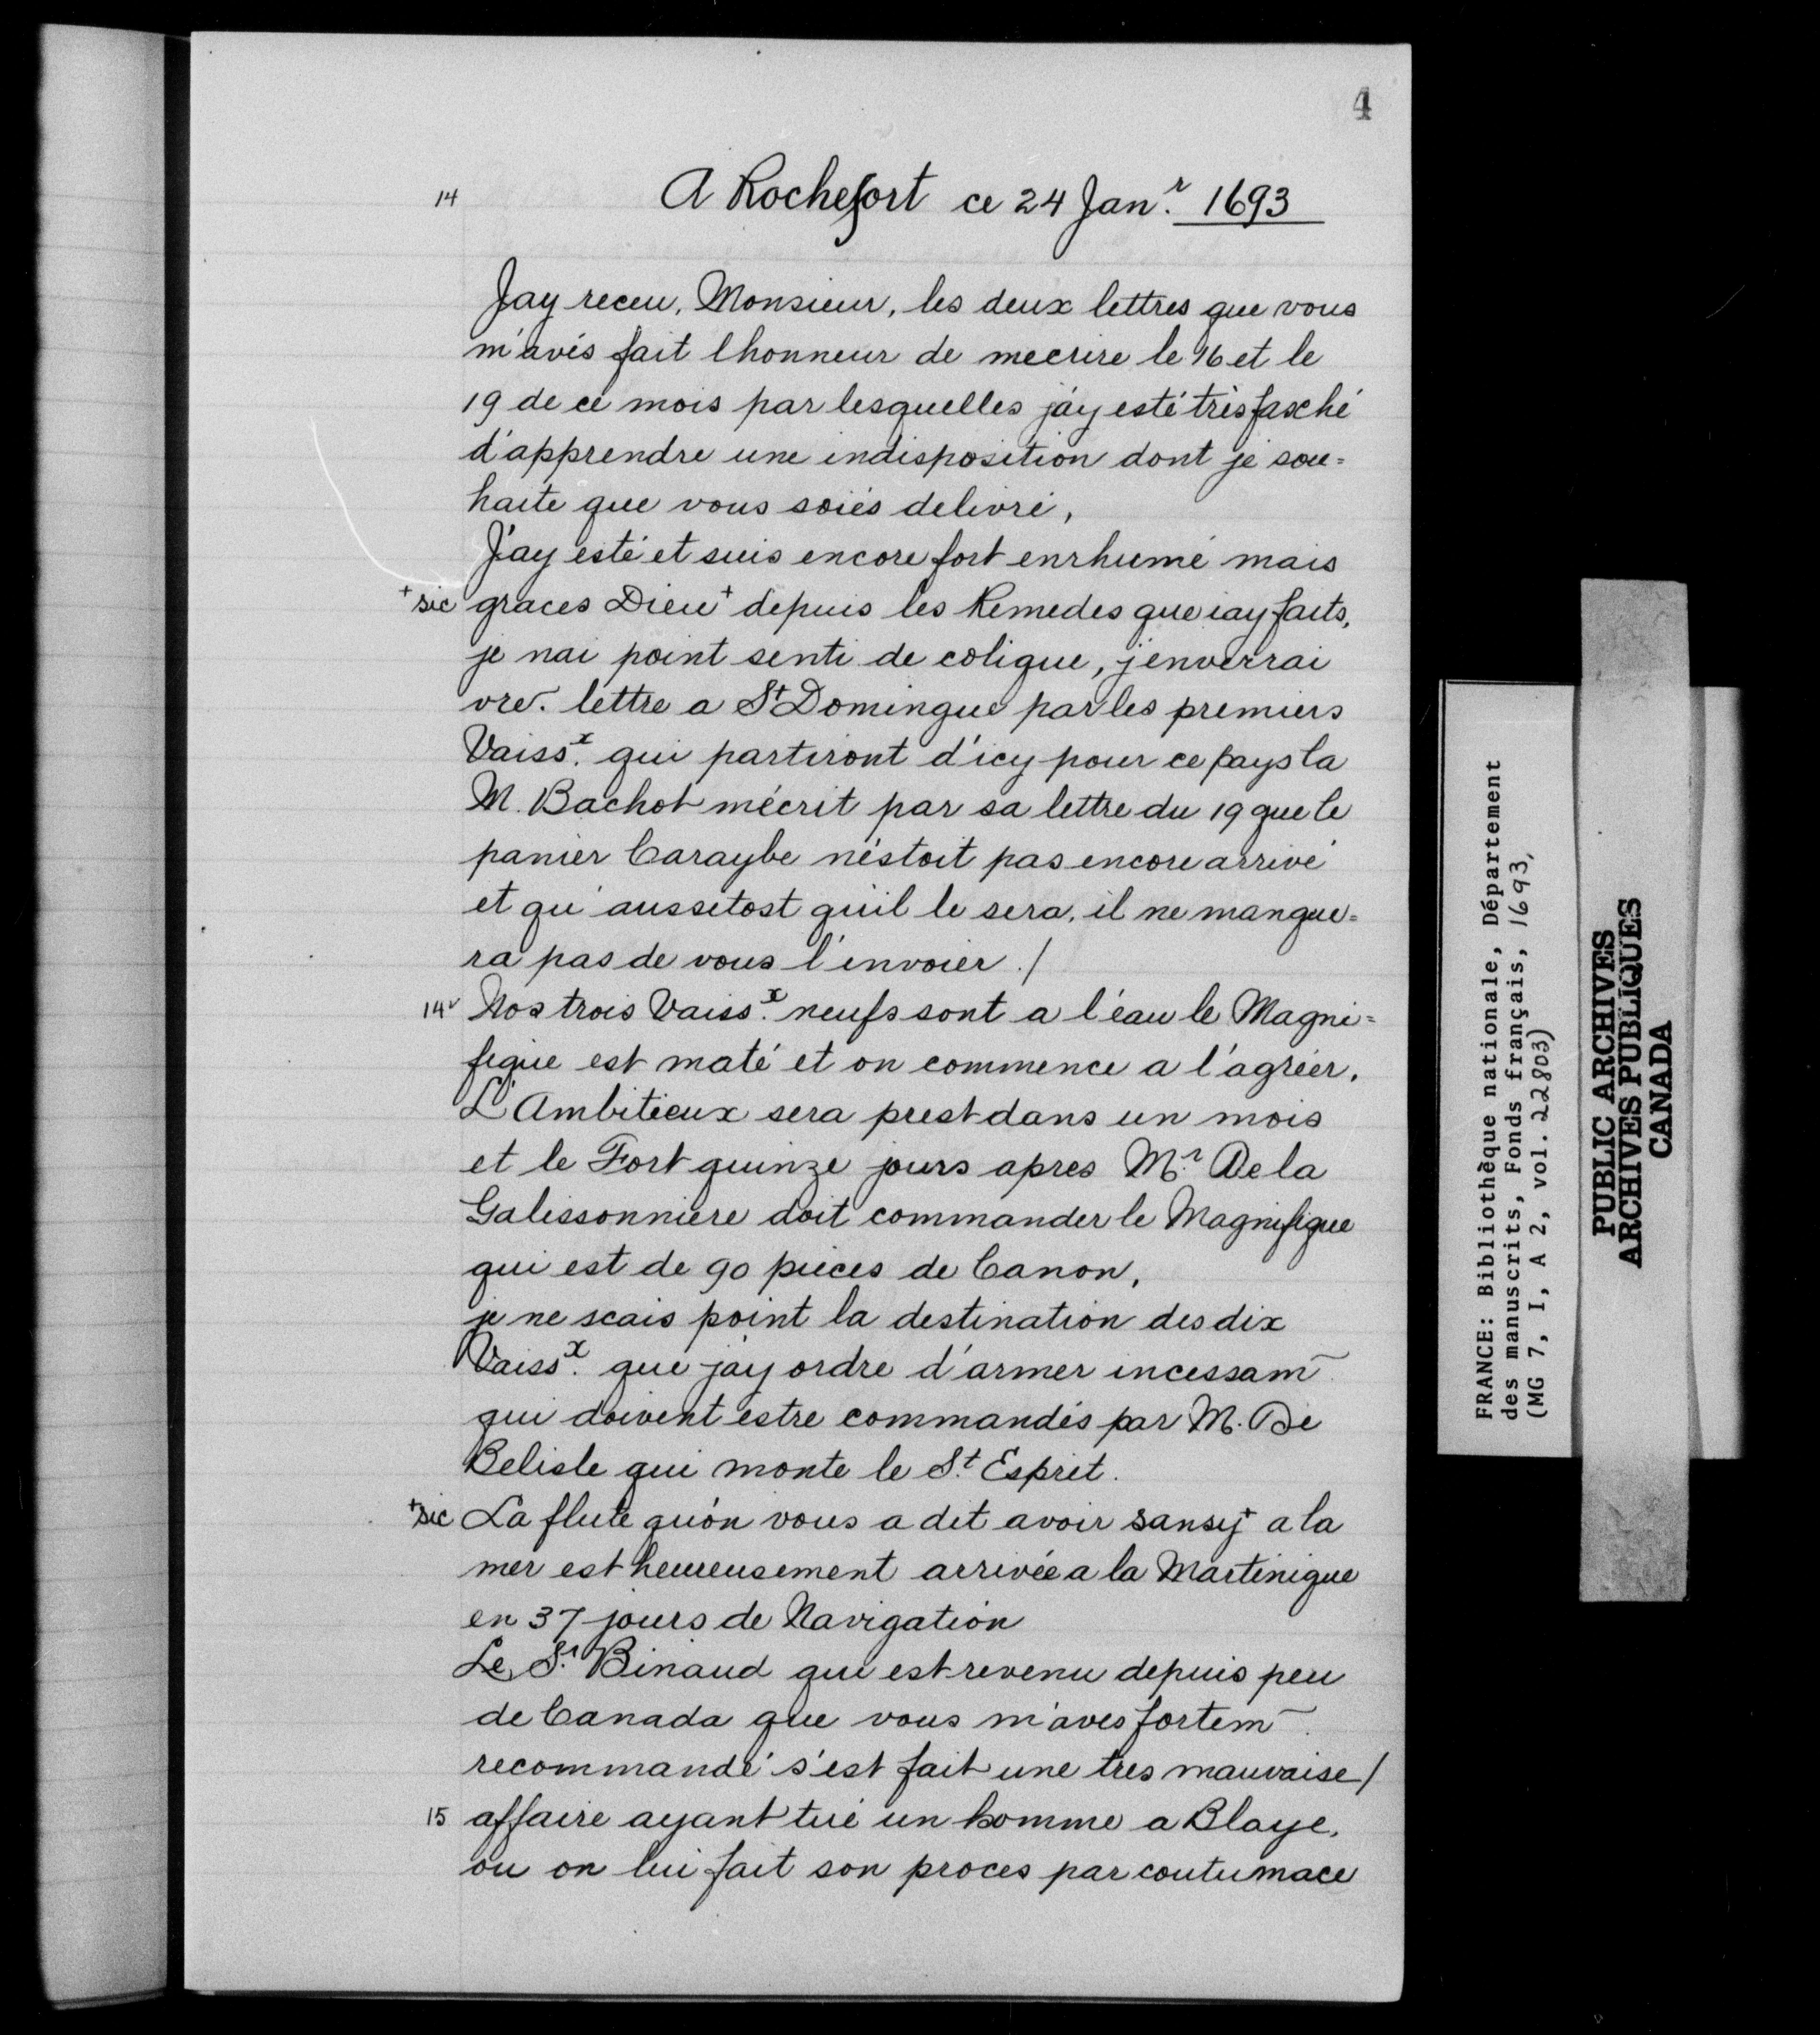 4
14 A Rochefort ce 24 Jan.r 1693
Jay receu, Monsieur, les deux lettres que vous
m'avés fait lhonneur de mecrire le 16 et le
19 de ce mois par lesquelles j'ay esté très fasché
d'apprendre une indisposition dont je sou=
haite que vous soiés delivré,
J'ay esté et suis encore fort enrhumé mais
+sic graces Dieu+ depuis les Remedes que iay faits,
je nai point senti de colique, j'enverrai
vre. lettre a St Domingue par les premiers
Vaiss.x qui partiront d'icy pour ce pays la
M. Bachot m'écrit par sa lettre du 19 que le
panier Caraybe n'éstoit pas encore arrivé
et qu'aussitost qu'il le sera, il ne manque=
ra pas de vous l'envoier./
14v Nos trois Vaiss.x neufs sont a l'éau le Magni=
fique est maté et on commence a l'agréer.
L'Ambitieux sera prest dans un mois
et le Fort quinze jours apres M.r De la
Galissonniere doit commander le Magnifique
qui est de 90 pieces de Canon,
je ne scais point la destination des dix
Vaiss.x que j'ay ordre d'armer incessam~
qui doivent estre commandés par M. De
Belisle qui monte le S.t Esprit.
+sic La flute qu'on vous a dit avoir sansy+ a la
mer est heureusement arrivée a la Martinique
en 37 jours de Navigation
Le S.r Binaud qui est revenu depuis peu
de Canada que vous m'aves fortem~
recommandé s'est fait une tres mauvaise/
15 affaire ayant tué un homme a Blaye,
ou on lui fait son proces par coutumace
FRANCE: Bibliothèque nationale, Département
des manuscrits, Fonds français, 1693,
(MG 7, I, A 2, vol. 22803)
PUBLIC ARCHIVES
ARCHIVES PUBLIQUES
CANADA